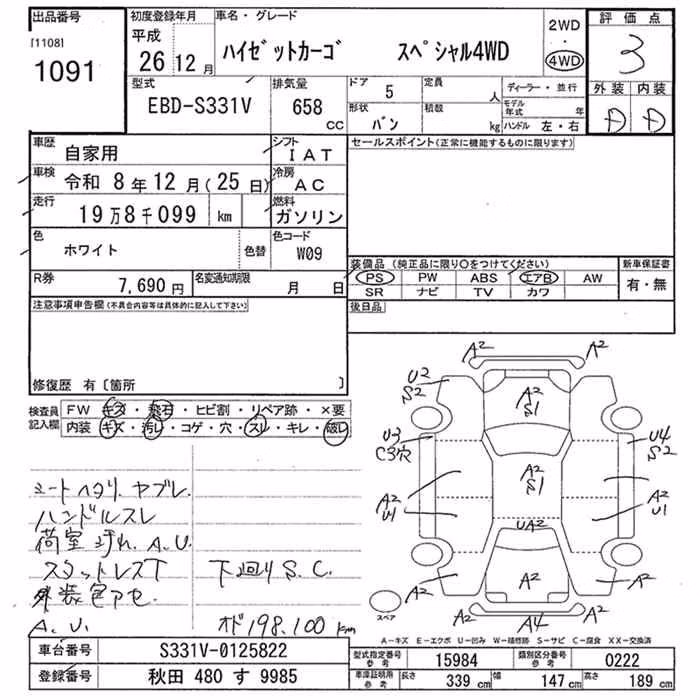 出品番号
[1108]
1091
初度登録年月
平成
26年12月
車名・グレード
ハイゼットカーゴ スペシャル4WD
2WD
・
4WD
評価点
3
外装 内装
型式
EBD-S331V
排気量
658
CC
ドア
5
定員
人
形状
バン
積数
kg
ディーラー・並行
モデル年式 年
ハンドル 左・右
車歴 自家用
シフト IAT
車検 令和 8年12月(25日)
冷房 AC
走行 19万8千099 km
燃料 ガソリン
色 ホワイト
色替
色コード W09
R券 7,690円
名変通知期限 月 日
セールスポイント(正常に機能するものに限ります)
装備品(純正品に限り○をつけてください)
新車保証書
PS PW ABS エアB AW
SR ナビ TV カワ
有・無
後日品
注意事項申告欄(不具合内容等は具体的に記入して下さい)
修復歴 有〔箇所 〕
検査員記入欄
FW キズ・飛石・ヒビ割・リペア跡・×要
内装 キズ・汚レ・コゲ・穴・スレ・キレ・破レ
シートヘタリ、ヤブレ
ハンドルスレ
荷室汚れ、A.U.
スタットレスT 下廻りS.C.
外装色アセ
A.U. オド198,100km
A2 A2
U2
S2
A2
S1
U3
C3穴
U4
S2
A2
S1
A2
U1
A2
U1
UA2
A2 A2 A2
A2 A4 A2
スペア
A-キズ E-エクボ U-凹み W-補修跡 S-サビ C-腐食 XX-交換済
車台番号 S331V-0125822
登録番号 秋田 480 す 9985
型式指定番号 参考 15984
類別区分番号 参考 0222
車庫証明用 参考 長さ 339cm 幅 147cm 高さ 189cm